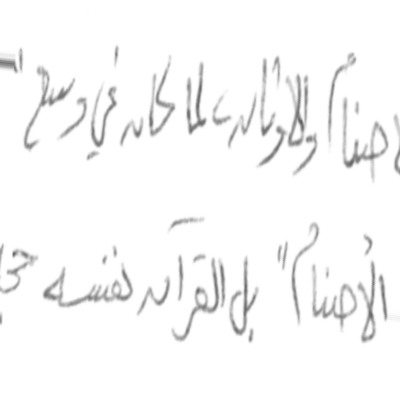 الأصنام والأوثان لما كان في وسع "
الأصنام" بل القرآن نفسه